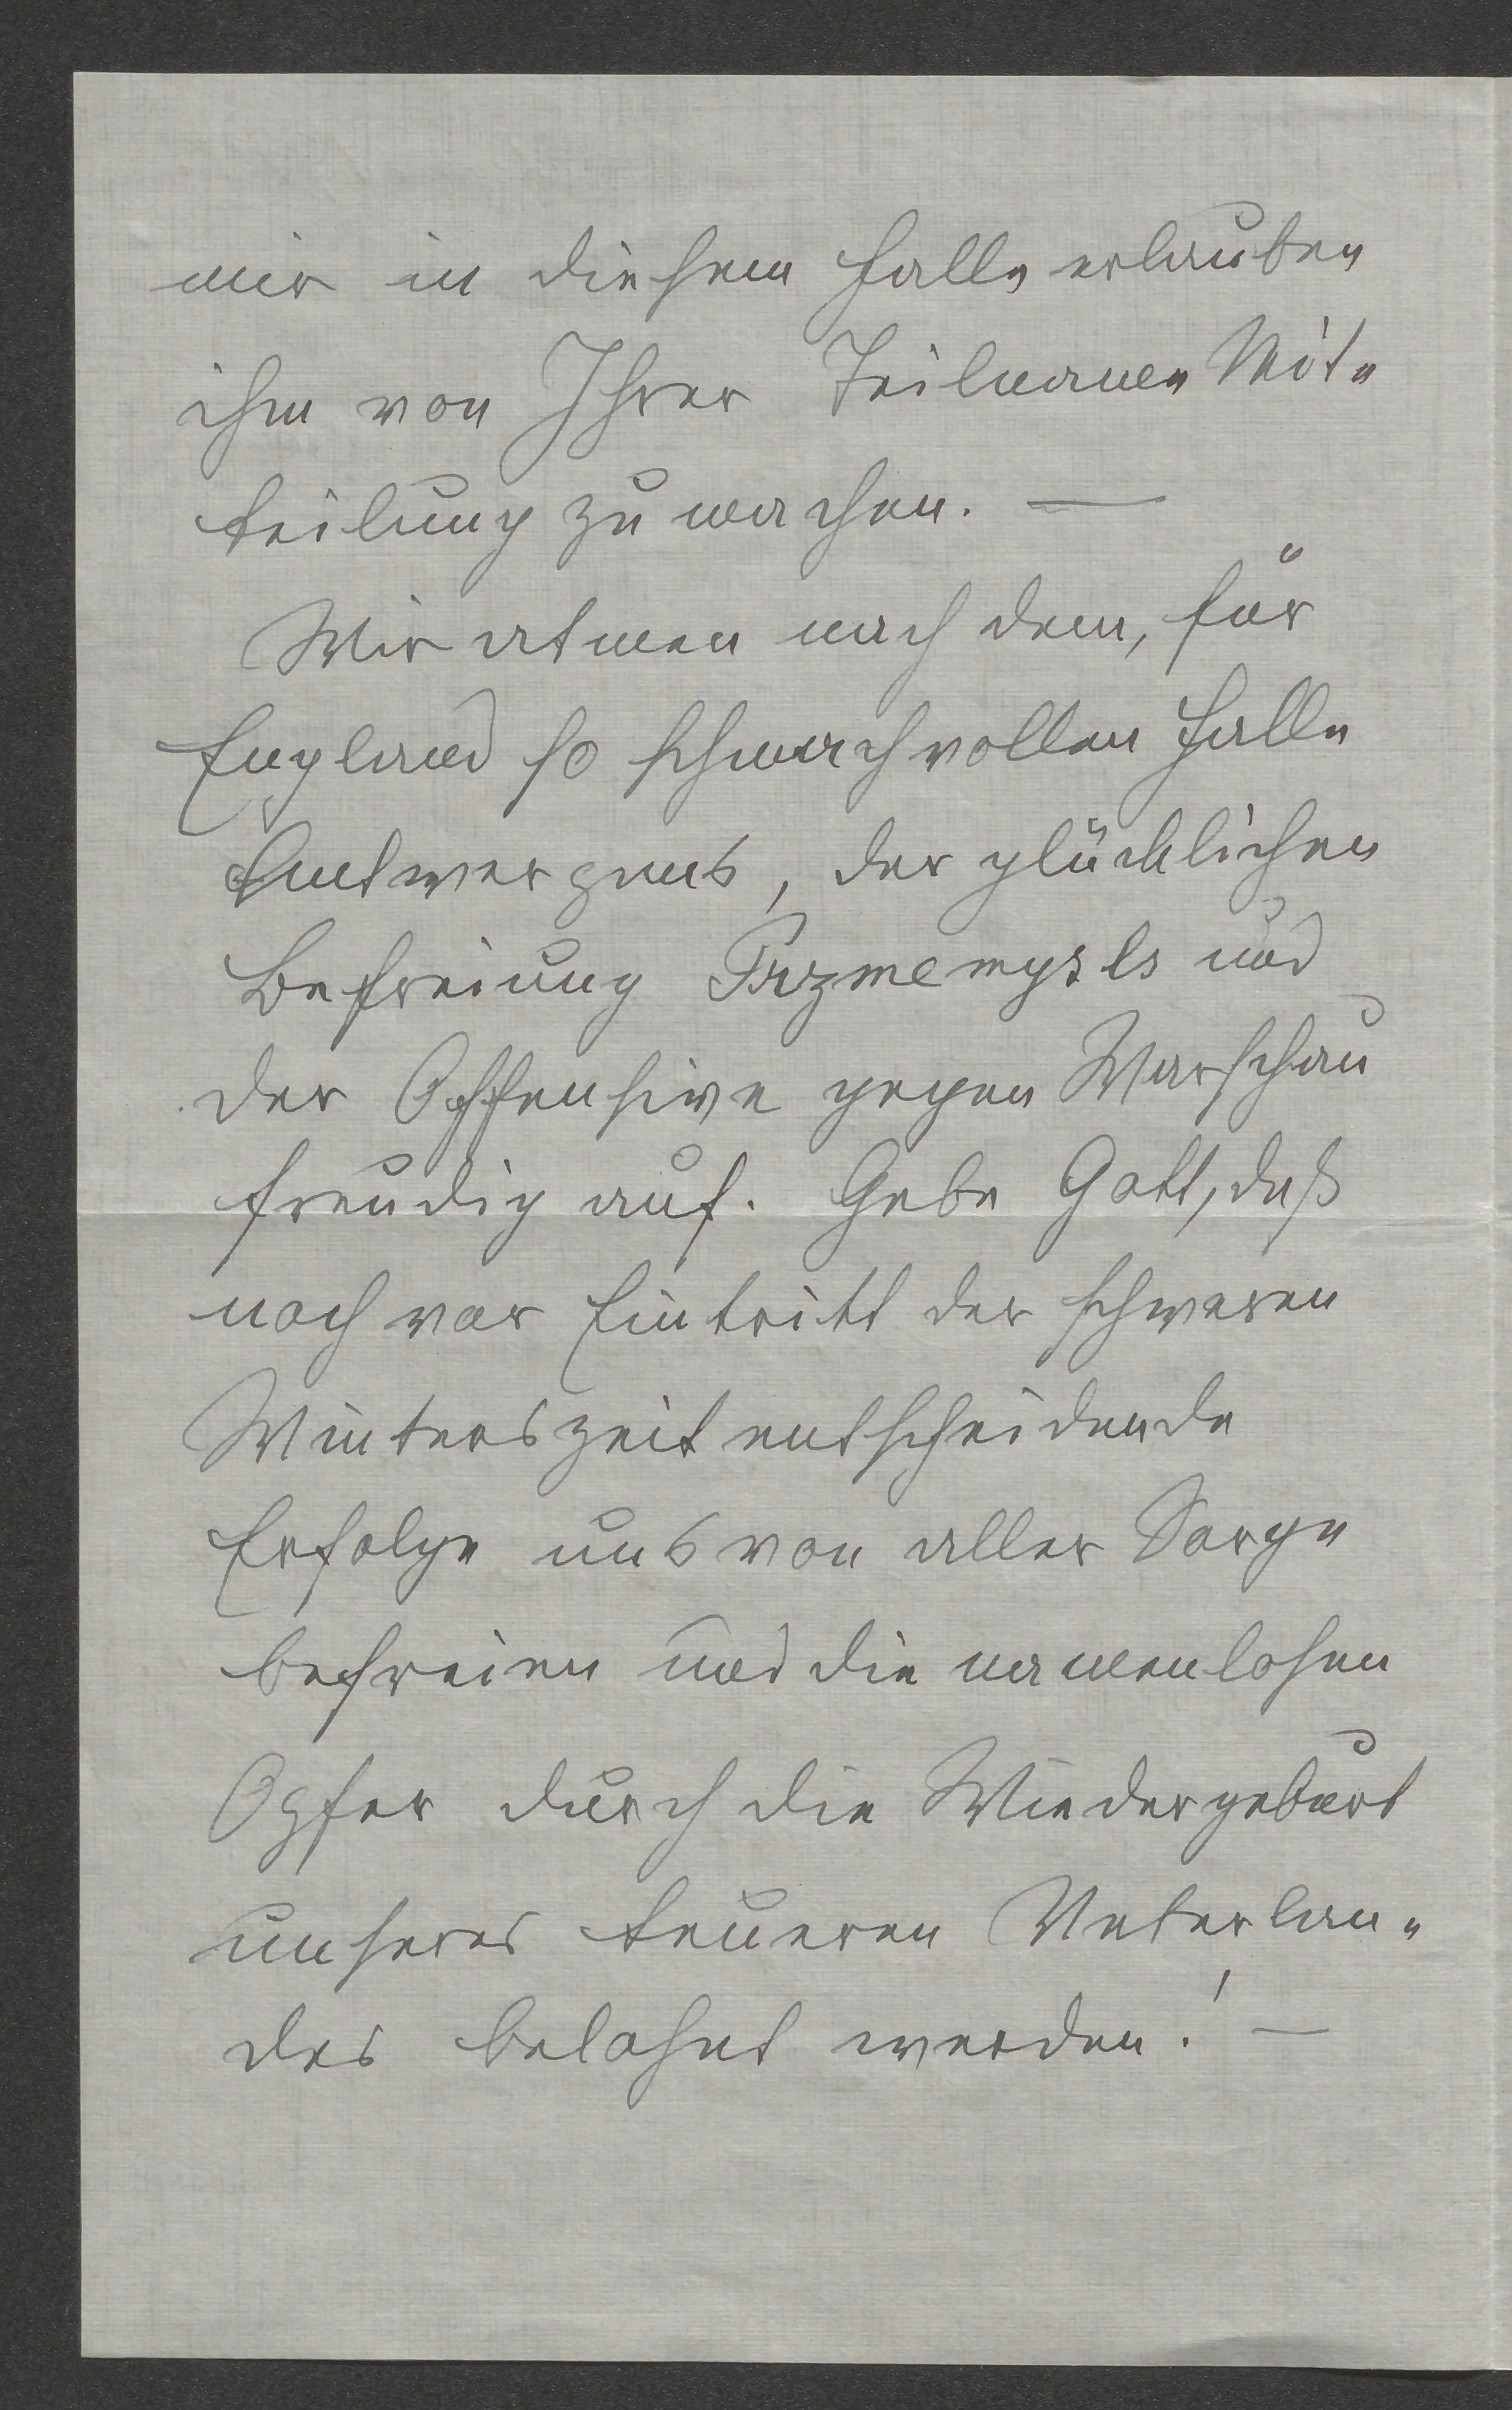 mir in diesem Falle erlauben
ihm von Ihrer Teilname Mit-
teilung zu machen. —
Wir atmen nach dem, für
England so schmachvollen Falle
Antwerpens, der glücklichen
Befreiung Przmemysls und
der Offensive gegen Warschau
freudig auf. Gebe Gott, daß
noch vor Eintritt der schweren
Winterszeit entscheidende
Erfolge uns von aller Sorge
befreien und die namenlosen
Opfer durch die Wiedergeburt
unseres teueren Vaterlan-
des belohnt werden! —